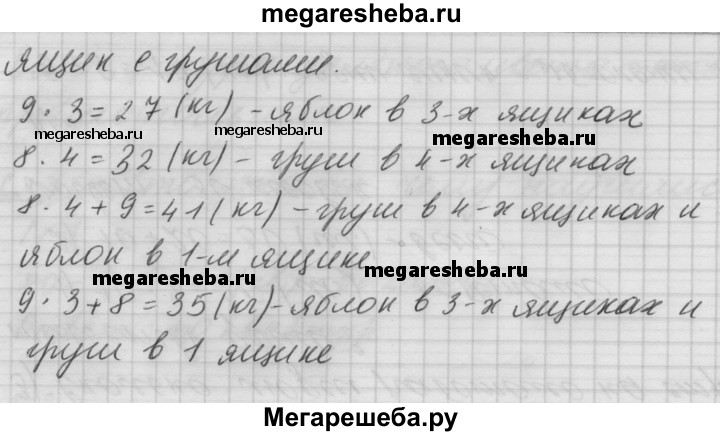 megaresheba.ru
ящик с грушами.
9 · 3 = 27 (кг) – яблок в 3-х ящиках
megaresheba.ru megaresheba.ru megaresheba.ru
8 · 4 = 32 (кг) – груш в 4-х ящиках
8 · 4 + 9 = 41 (кг) – груш в 4-х ящиках и
яблок в 1-м ящике
megaresheba.ru megaresheba.ru
9 · 3 + 8 = 35 (кг) – яблок в 3-х ящиках и
груш в 1 ящике
Мегарешеба.ру